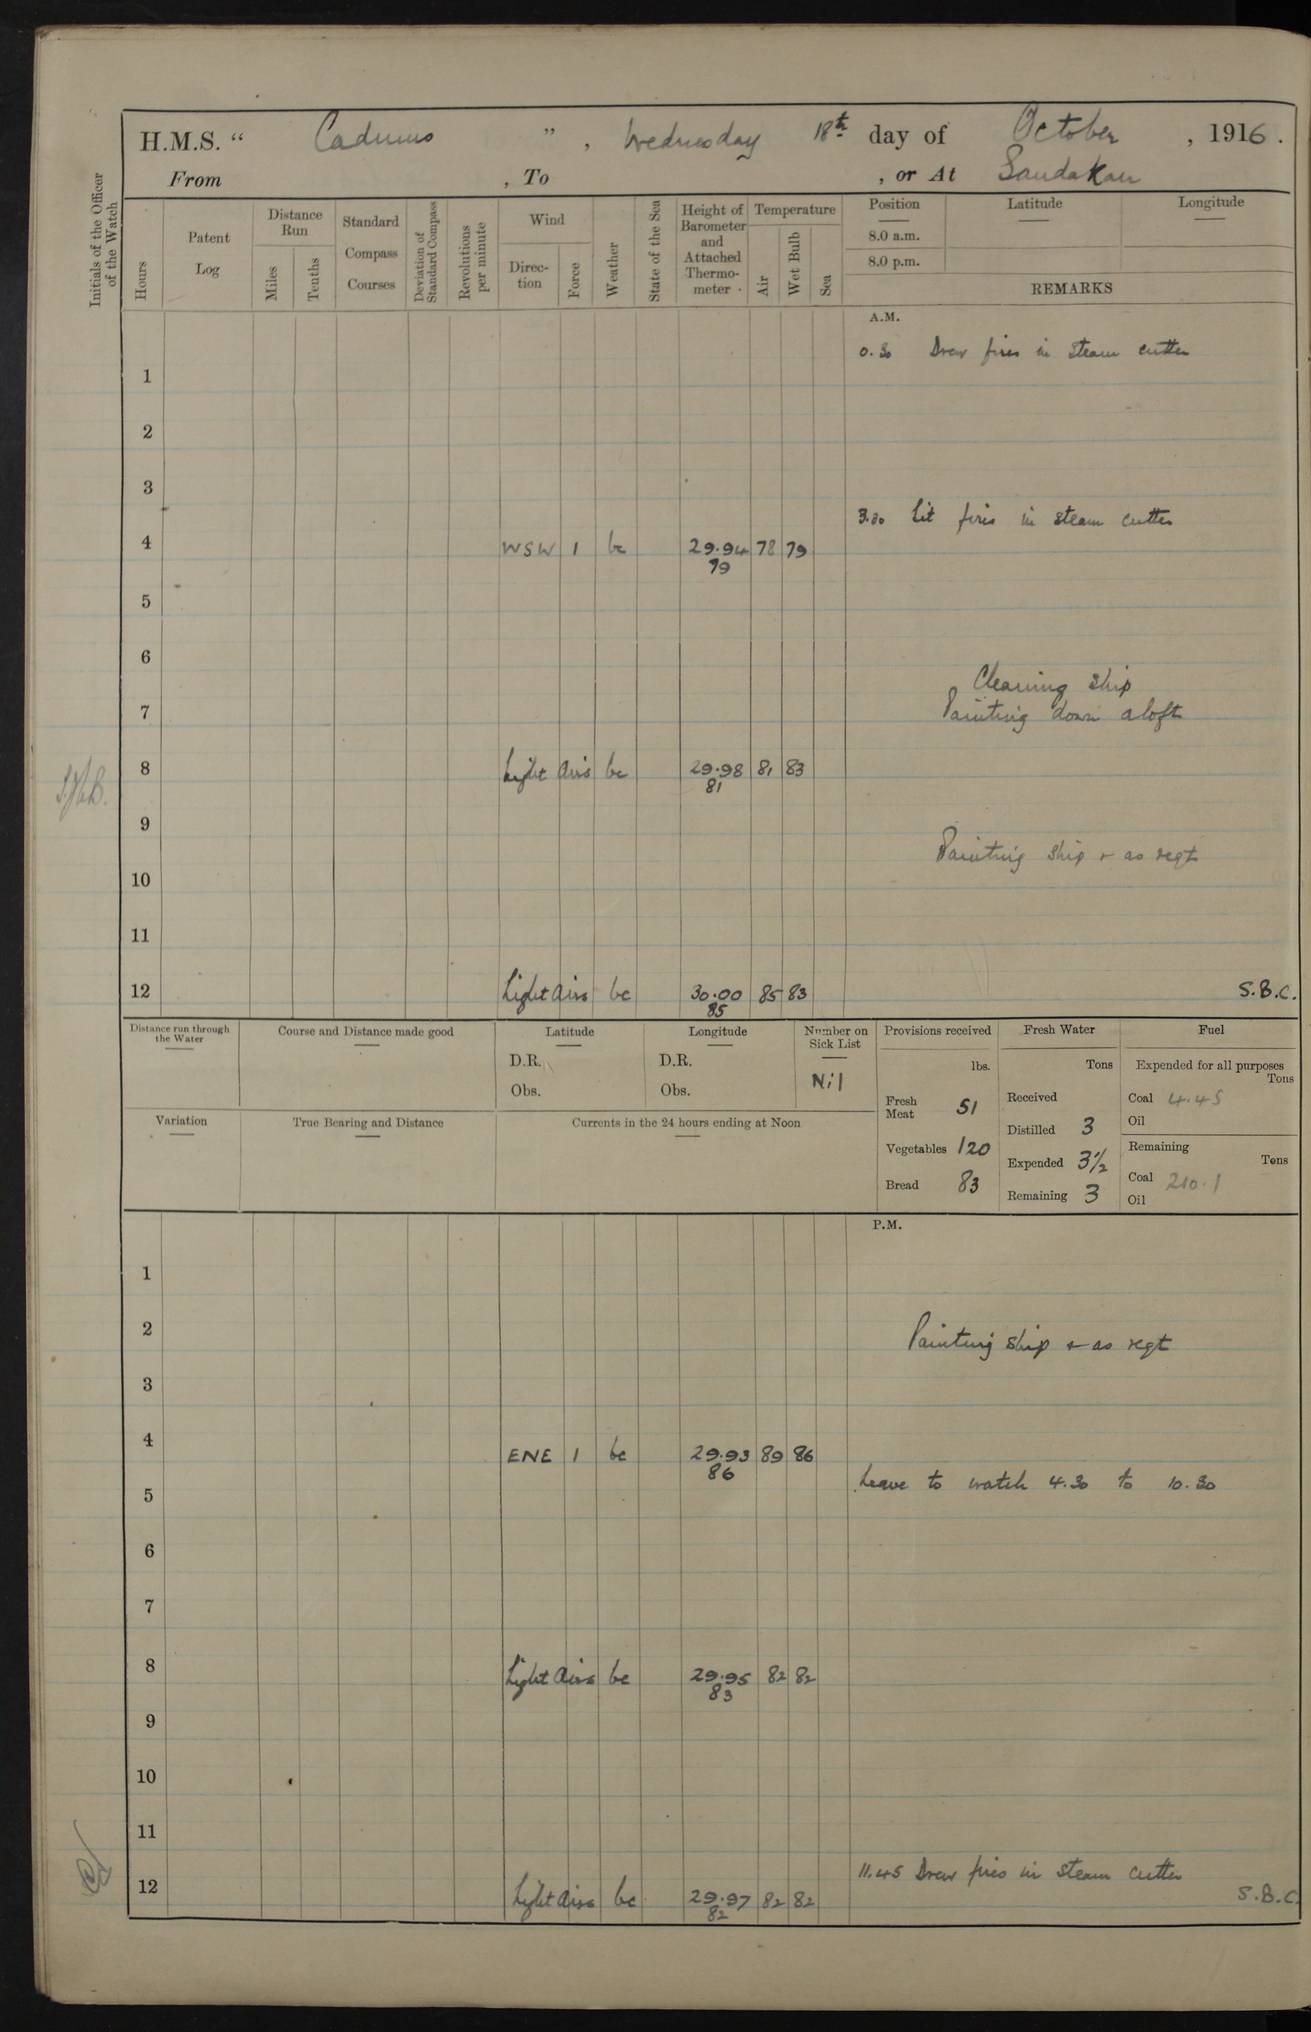 H.M.S. " Cadmus ", Wednesday 18th day of October, 1916.
From , To , or At Sandakan
Initials of the Officer of the Watch
Hours
Patent Log
Distance Run
Miles
Tenths
Standard Compass Courses
Deviation of Standard Compass
Revolutions per minute
Wind
Direction
Force
Weather
State of the Sea
Height of Barometer and Attached Thermometer
Temperature
Air
Wet Bulb
Sea
Position
8.0 a.m.
8.0 p.m.
Latitude
Longitude
REMARKS
A.M.
0.30 Drew fires in steam cutter
1
2
3
3.30 Lit fires in steam cutter
4 WSW 1 bc 29.94 78 79
79
5
6
Cleaning ship
7 Painting down aloft
8 Light airs bc 29.98 81 83
81
9
Painting ship & as reqt
10
11
12 Light airs bc 30.00 85 83 S.B.C.
85
Distance run through the Water
Course and Distance made good
Latitude
D.R.
Obs.
Longitude
D.R.
Obs.
Number on Sick List
Nil
Provisions received
lbs.
Fresh Meat 51
Vegetables 120
Bread 83
Fresh Water
Tons
Received
Distilled 3
Expended 3½
Remaining 3
Fuel
Expended for all purposes
Tons
Coal 4.45
Oil
Remaining
Tons
Coal 210.1
Oil
Variation
True Bearing and Distance
Currents in the 24 hours ending at Noon
P.M.
1
2 Painting ship & as reqt
3
4 ENE 1 bc 29.93 89 86
86
Leave to watch 4.30 to 10.30
5
6
7
8 Light airs bc 29.95 82 82
83
9
10
11
11.45 Drew fires in steam cutter
12 Light airs bc 29.97 82 82 S.B.C.
82